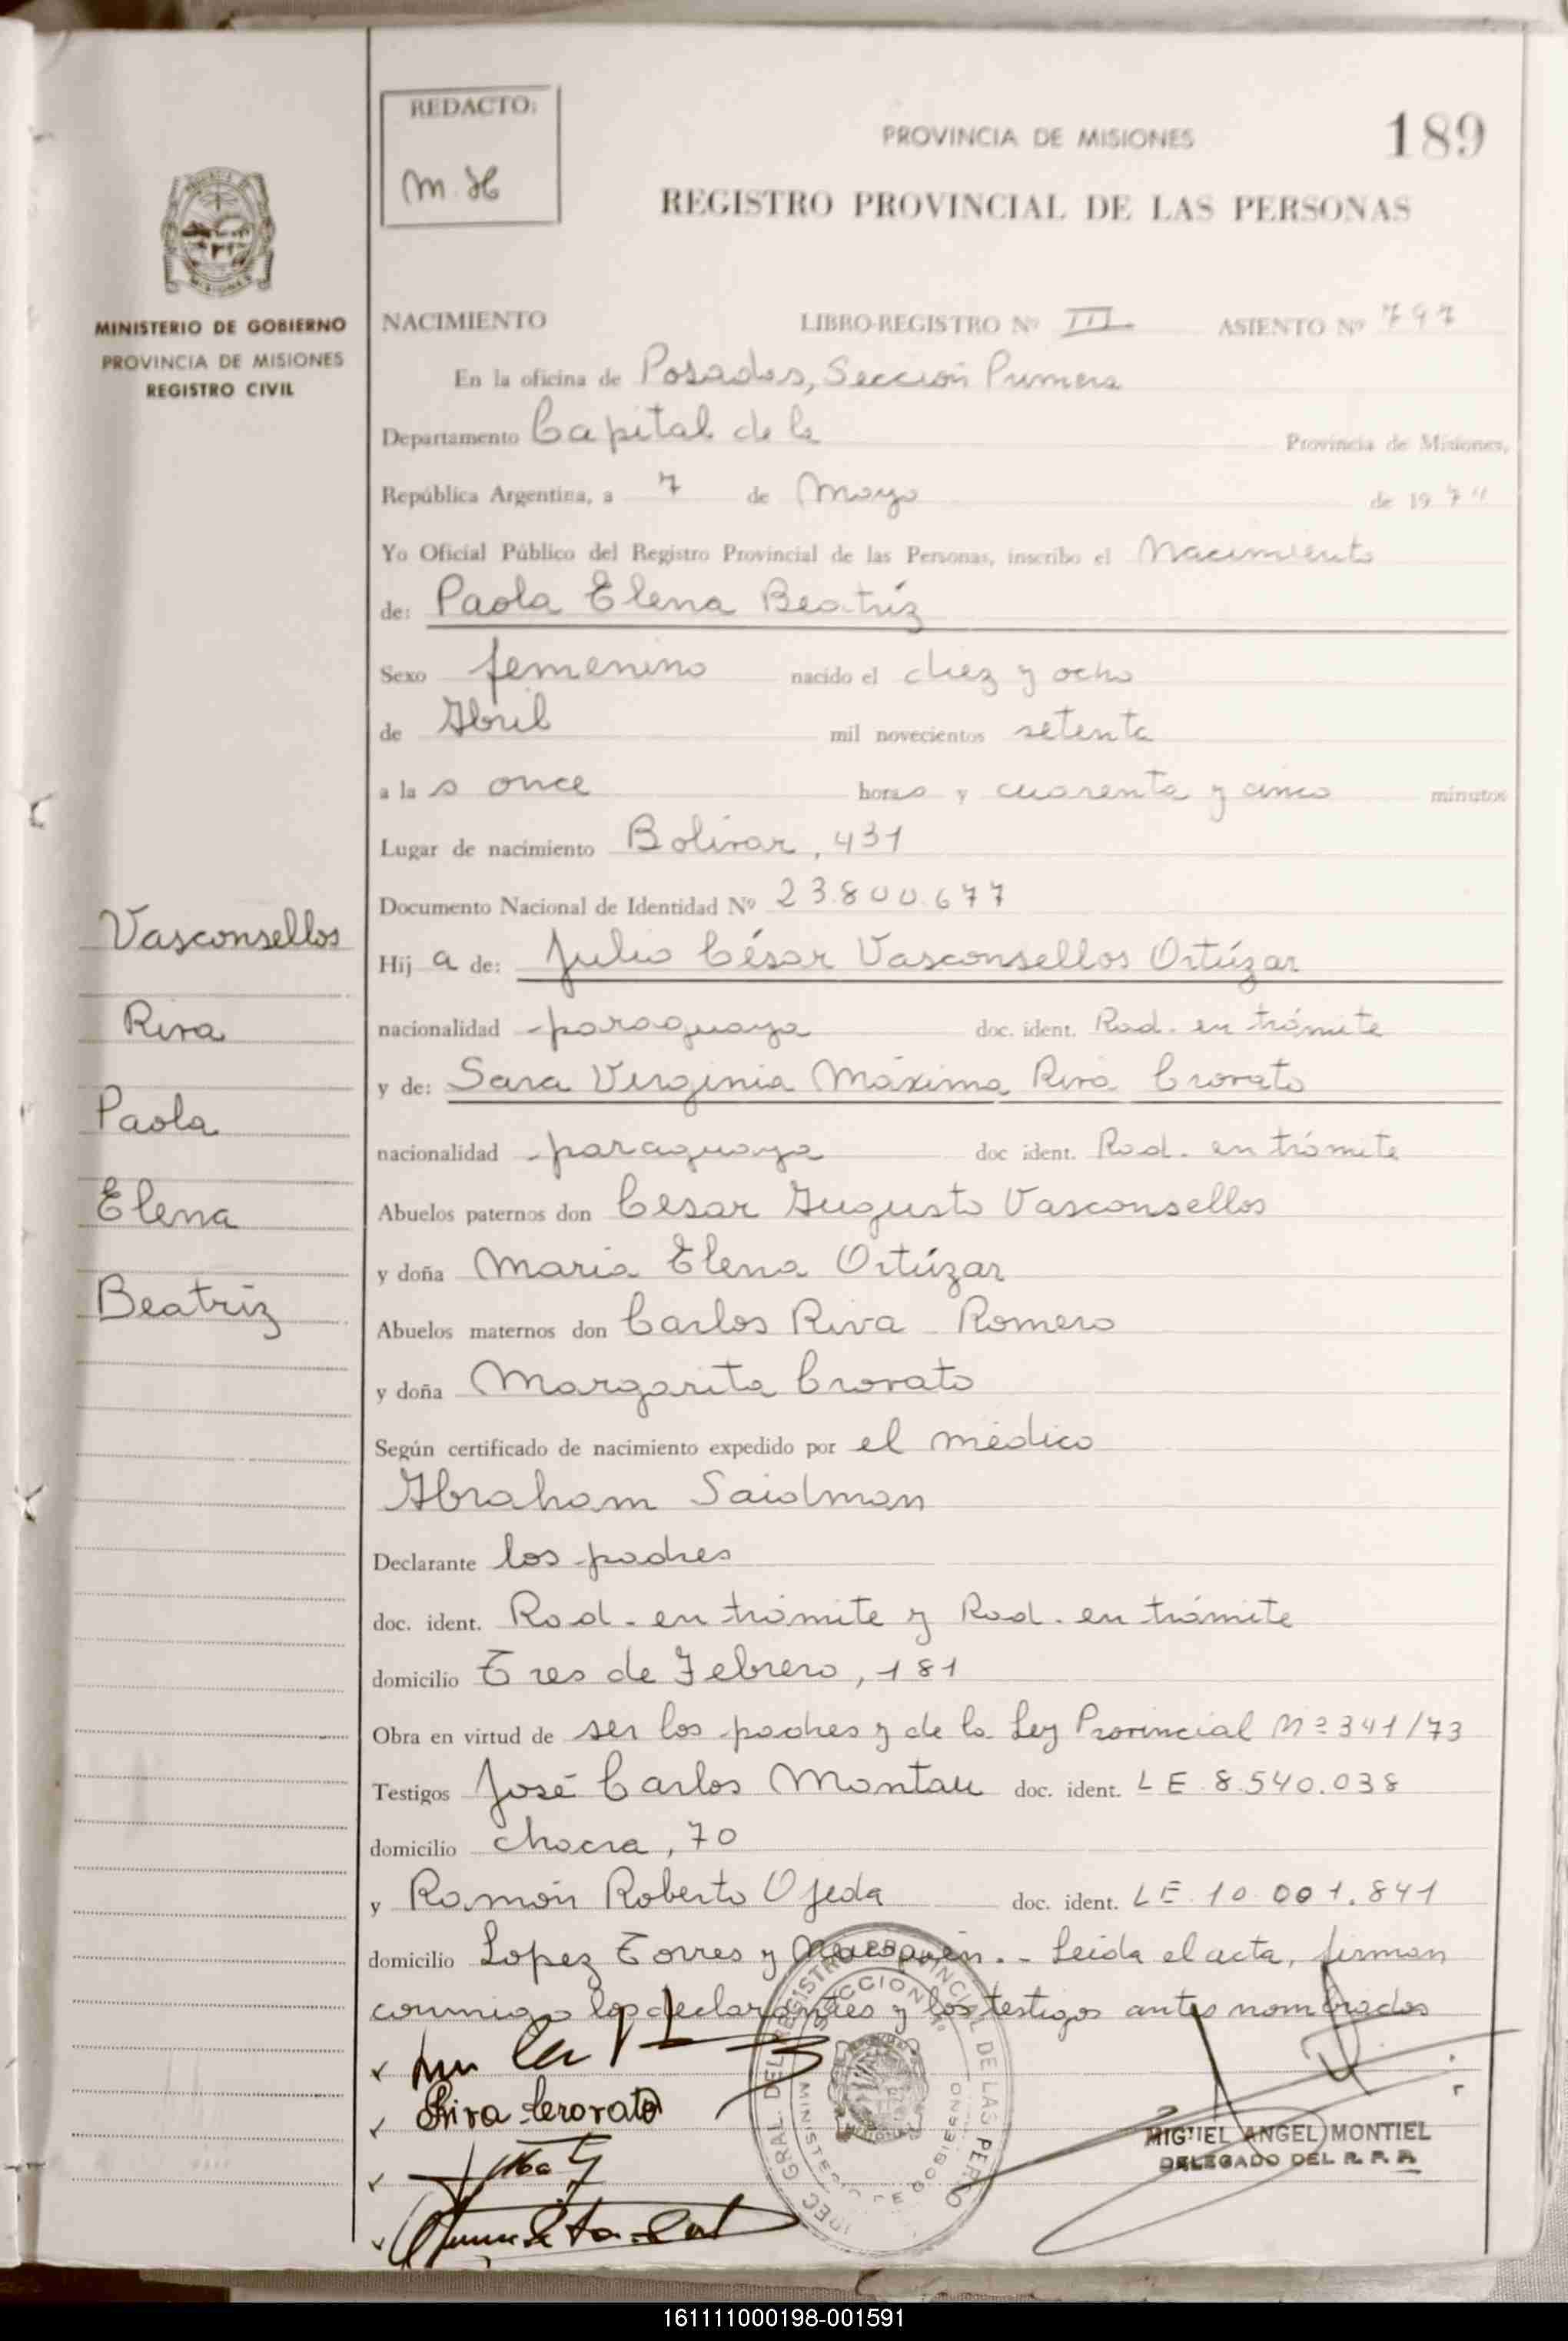 REDACTO:
M. H
PROVINCIA DE MISIONES
189
REGISTRO PROVINCIAL DE LAS PERSONAS
MISIONES
MINISTERIO DE GOBIERNO
PROVINCIA DE MISIONES
REGISTRO CIVIL
NACIMIENTO LIBRO-REGISTRO Nº III ASIENTO Nº 797
En la oficina de Posadas, Sección Primera
Departamento Capital de la Provincia de Misiones,
República Argentina, a 7 de Mayo de 197
Yo Oficial Público del Registro Provincial de las Personas, inscribo el Nacimiento
de: Paola Elena Beatríz
Sexo femenino nacido el diez y ocho
de Abril mil novecientos setenta
a las once horas y cuarenta y cinco minutos
Lugar de nacimiento Bolívar, 431
Documento Nacional de Identidad Nº 23.800.677
Hija de: Julio César Vasconsellos Ortúzar
nacionalidad paraguaya doc. ident. Rad. en trámite
y de: Sara Virginia Máxima Riva Crovato
nacionalidad paraguaya doc ident. Rad. en trámite
Abuelos paternos don Cesar Augusto Vasconsellos
y doña Maria Elena Ortúzar
Abuelos maternos don Carlos Riva Romero
y doña Margarita Crovato
Según certificado de nacimiento expedido por el médico
Abraham Saidman
Declarante los padres
doc. ident. Rad. en trámite y Rad. en trámite
domicilio Tres de Febrero, 181
Obra en virtud de ser los padres y de la Ley Provincial Nº 341/73
Testigos José Carlos Montau doc. ident. LE 8.540.038
domicilio chacra, 70
y Ramón Roberto Ojeda doc. ident. LE 10.001.841
domicilio Lopez Torres y Neuquén. - Leída el acta, firman
conmigo los declarantes y los testigos antes nombrados
Vasconsellos
Riva
Paola
Elena
Beatríz
Riva Crovato
GRAL. DEL REGISTRO PROVINCIAL DE LAS PERSO
SECCION 1ª
MINISTERIO DE GOBIERNO
MIGUEL ANGEL MONTIEL
DELEGADO DEL R. P. P.
161111000198-001591